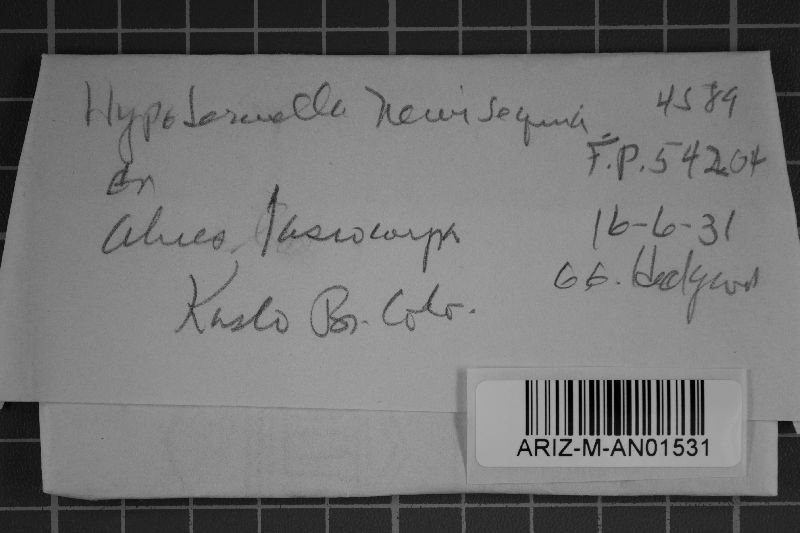 Hypodermella nervisequia 4589
F.P. 54204
on
Abies lasiocarpa 16-6-31
G G. Hedgcock
Kaslo Br. Colo.
ARIZ-M-AN01531